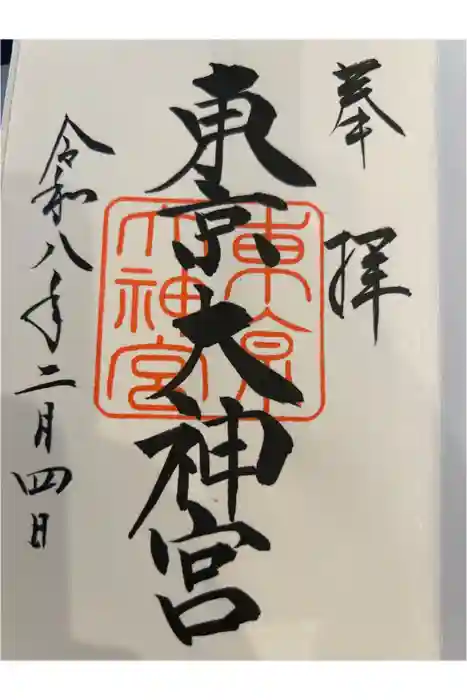 奉拝
東京大神宮
東京大神宮
令和八年二月四日